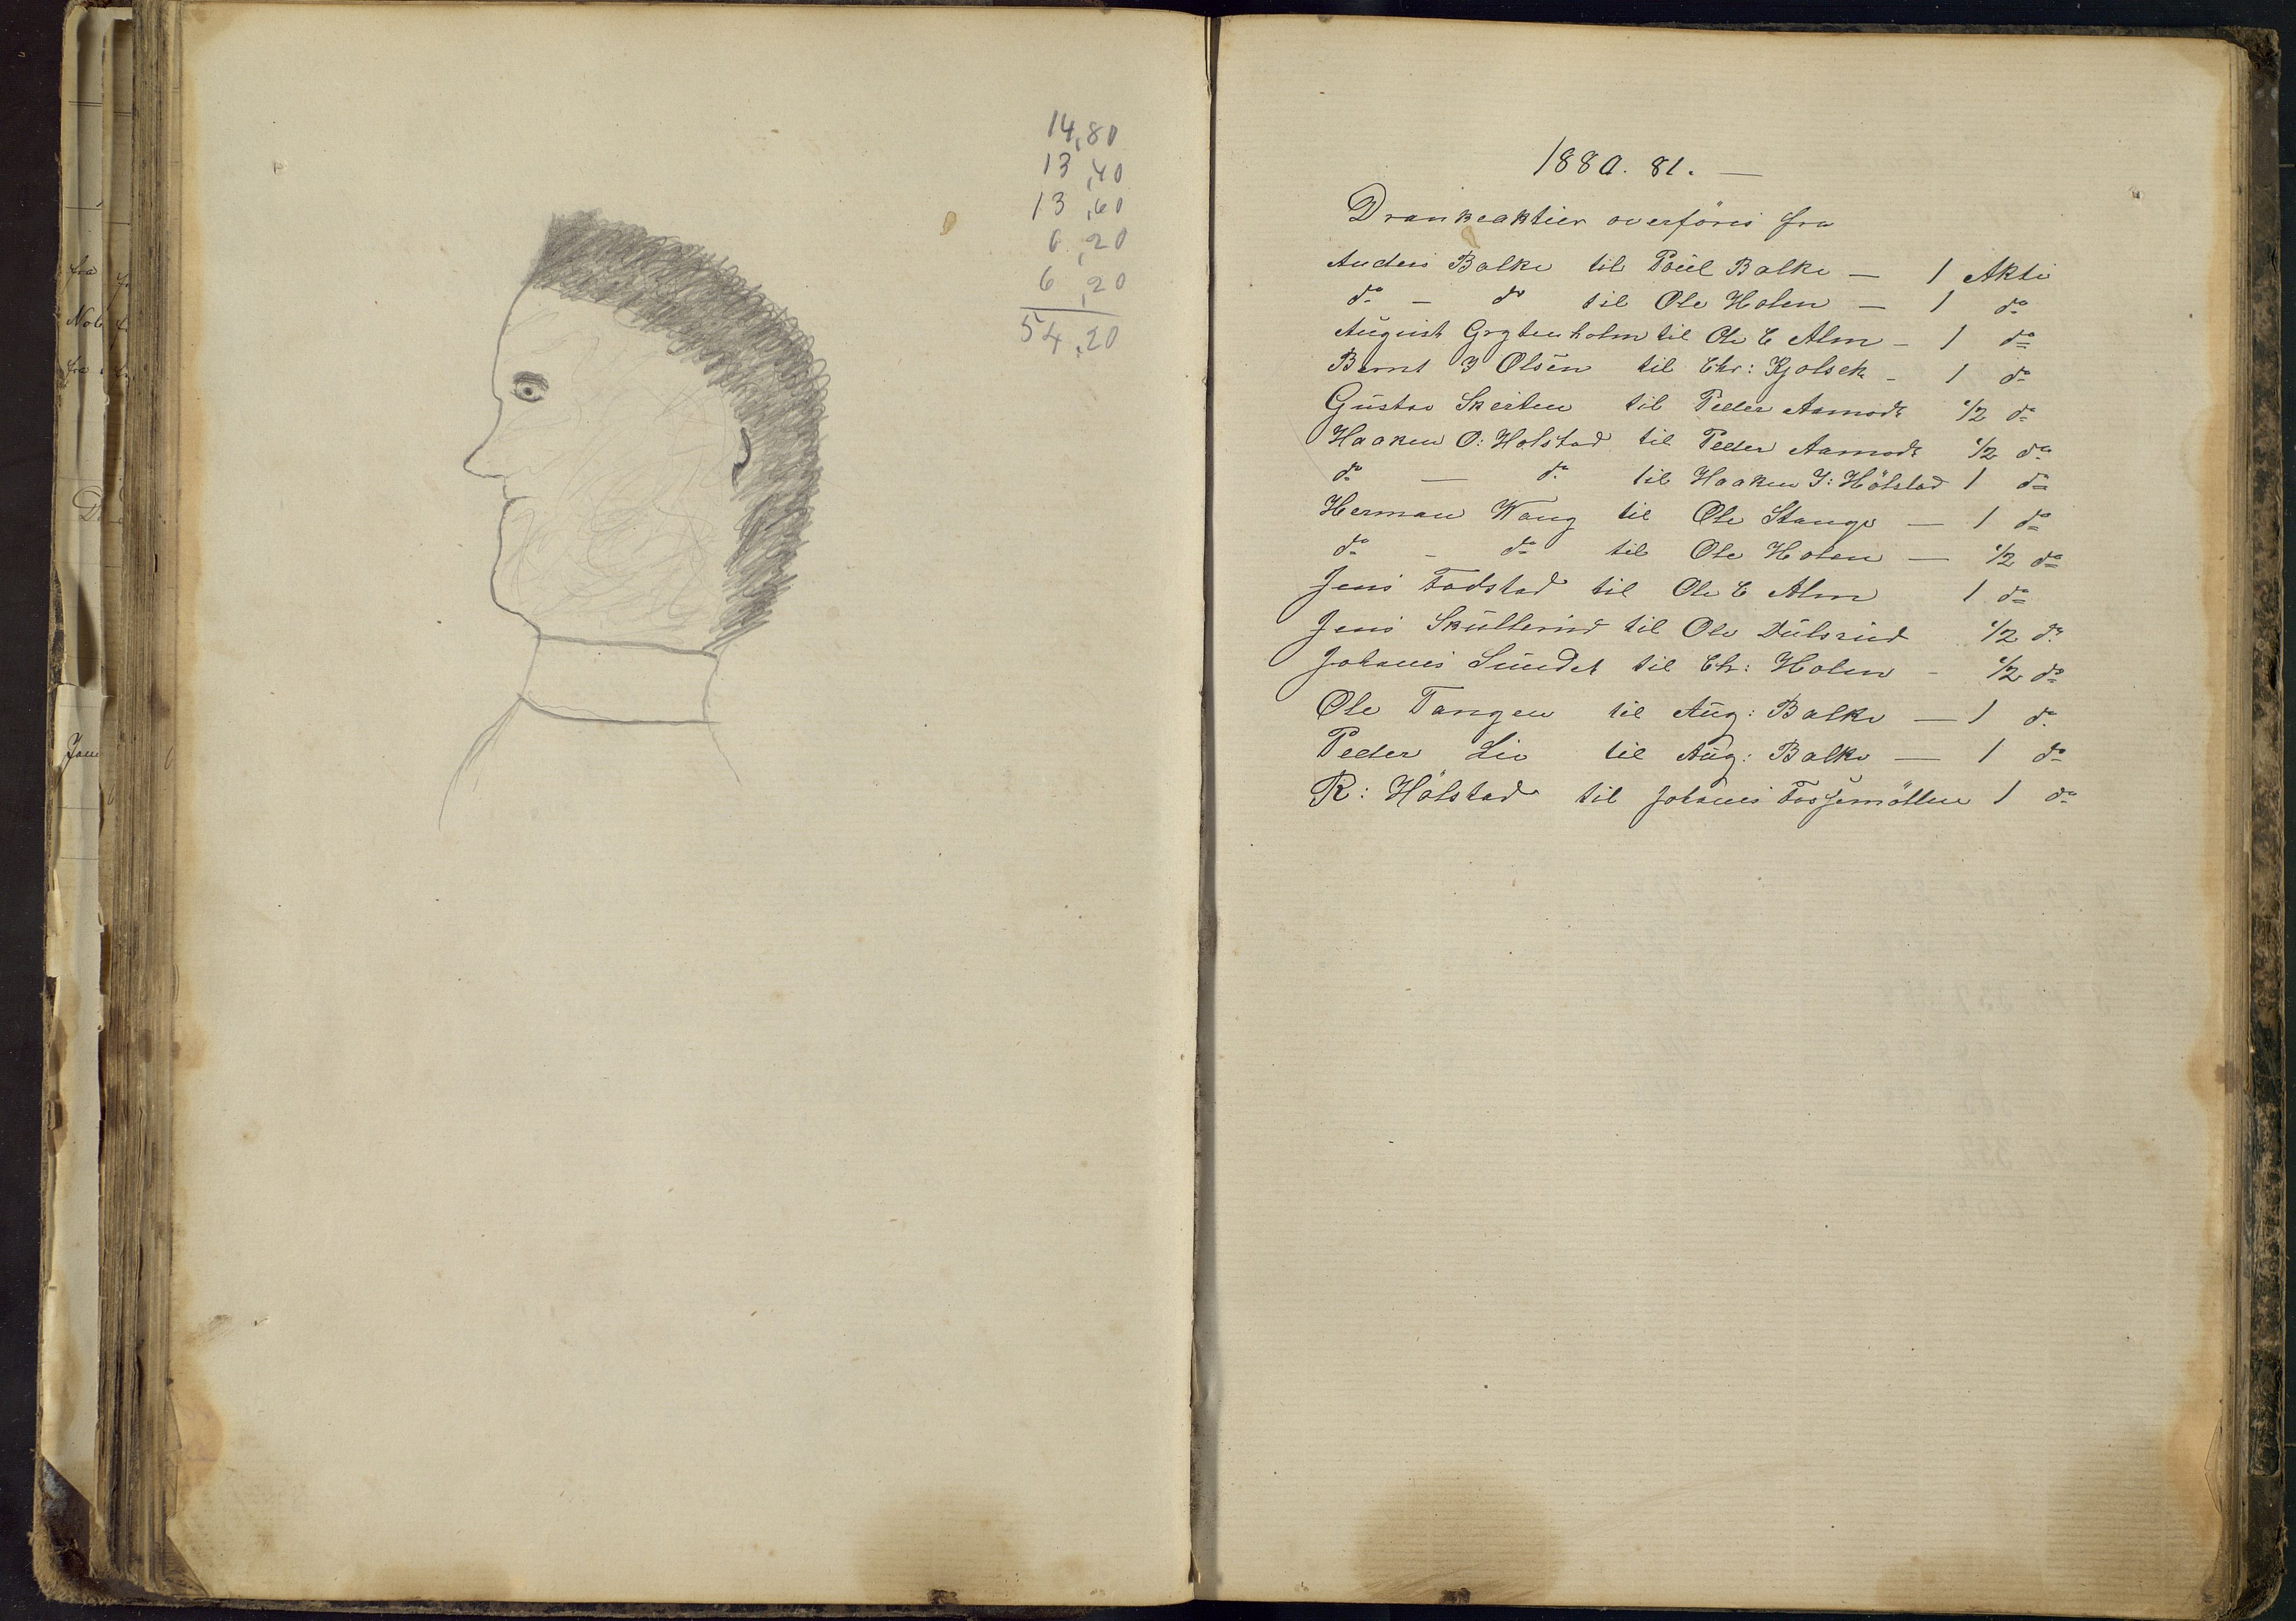 14,80
13,40
13,60
6,20
6,20
54,20
1880. 81. —
Drankeaktier overföres fra
Anders Balke til Poul Balke — 1 Aktie
do — do til Ole Holen — 1 do
August Grytenholm til Ole E Alm — 1 do
Bernt J Olsen til Chr: Kjolseth — 1 do
Gustav Skeiten til Peder Aamodt 1/2 do
Haaken O: Holstad til Peder Aamodt 1/2 do
do — do til Haaken J: Hölstad 1 do
Herman Wang til Ole Stange — 1 do
do — do til Ole Holen — 1/2 do
Jens Fodstad til Ole E Alm 1 do
Jens Skullerud til Ole Dulsrud 1/2 do
Johanes Sundet til Chr: Holen — 1/2 do
Ole Tangen til Aug: Balke — 1 do
Peder Lie til Aug: Balke — 1 do
R: Hölstad til Johanes Fossemöllen 1 do
fra
Nob
fra
Jens